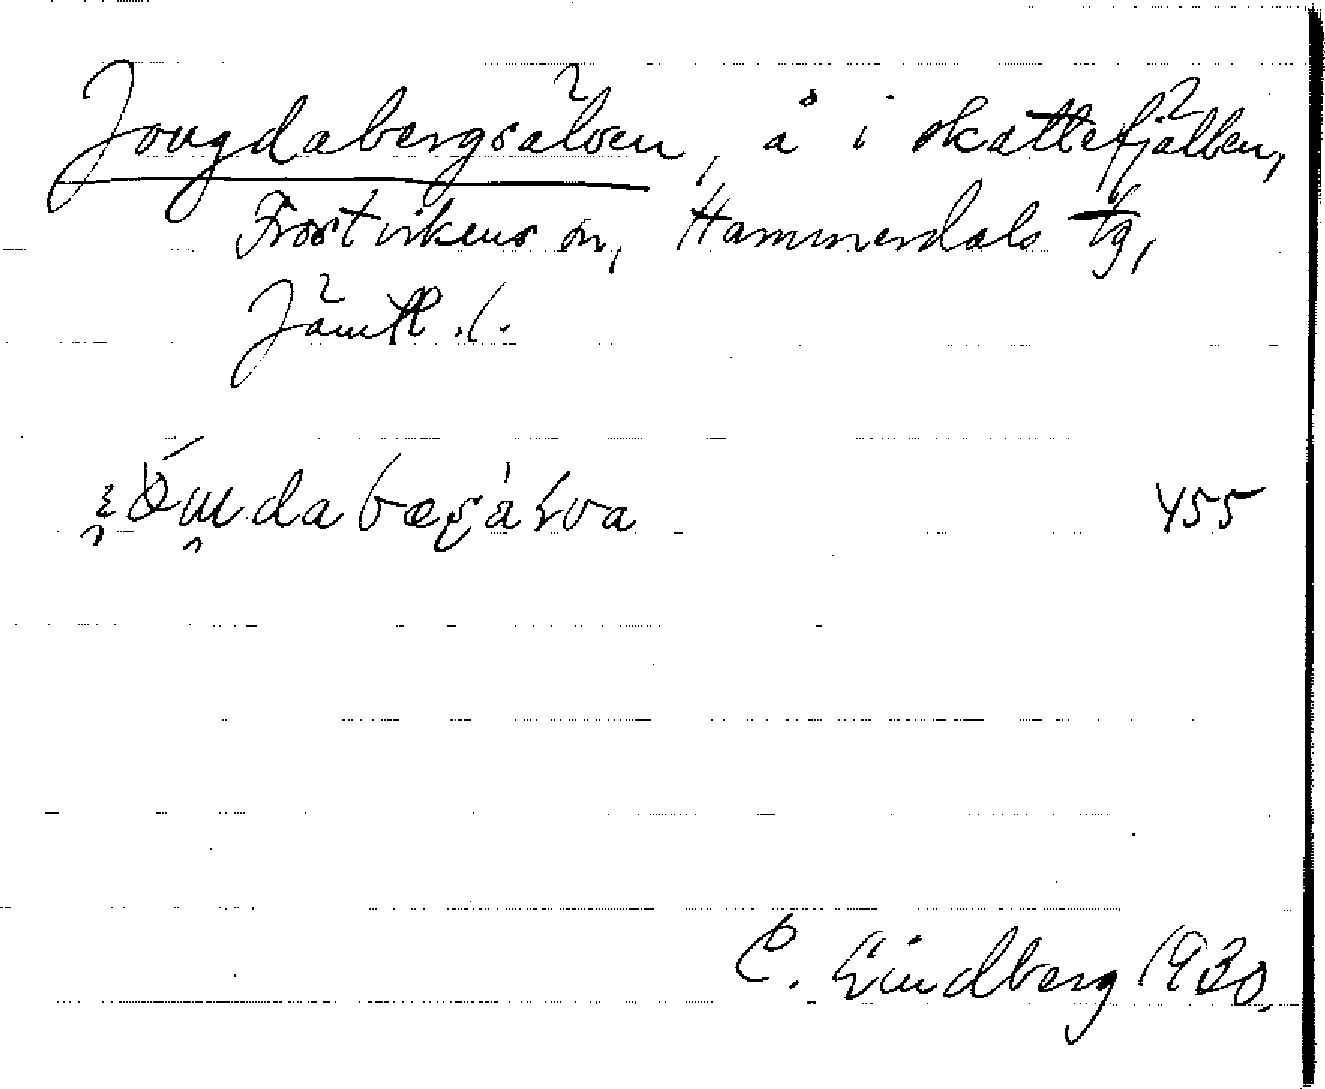 Jougdabergsälven, å i skattefjällen,
Frostvikens sn, Hammerdals tg,
Jämtl. l.
455
C. Lindberg 1930.